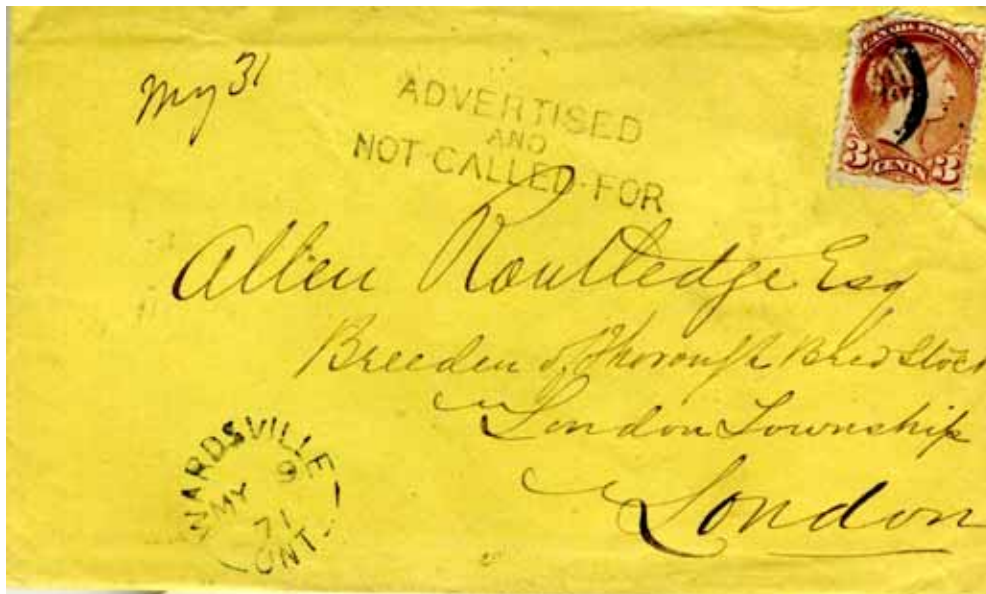 My 31
ADVERTISED
AND
NOT CALLED FOR
CANADA POSTAGE
3 CENTS 3
Allen Routledge Esq
Breeder of Thorough Bred Stock
London Township
London
WARDSVILLE
9
MY
71
ONT.